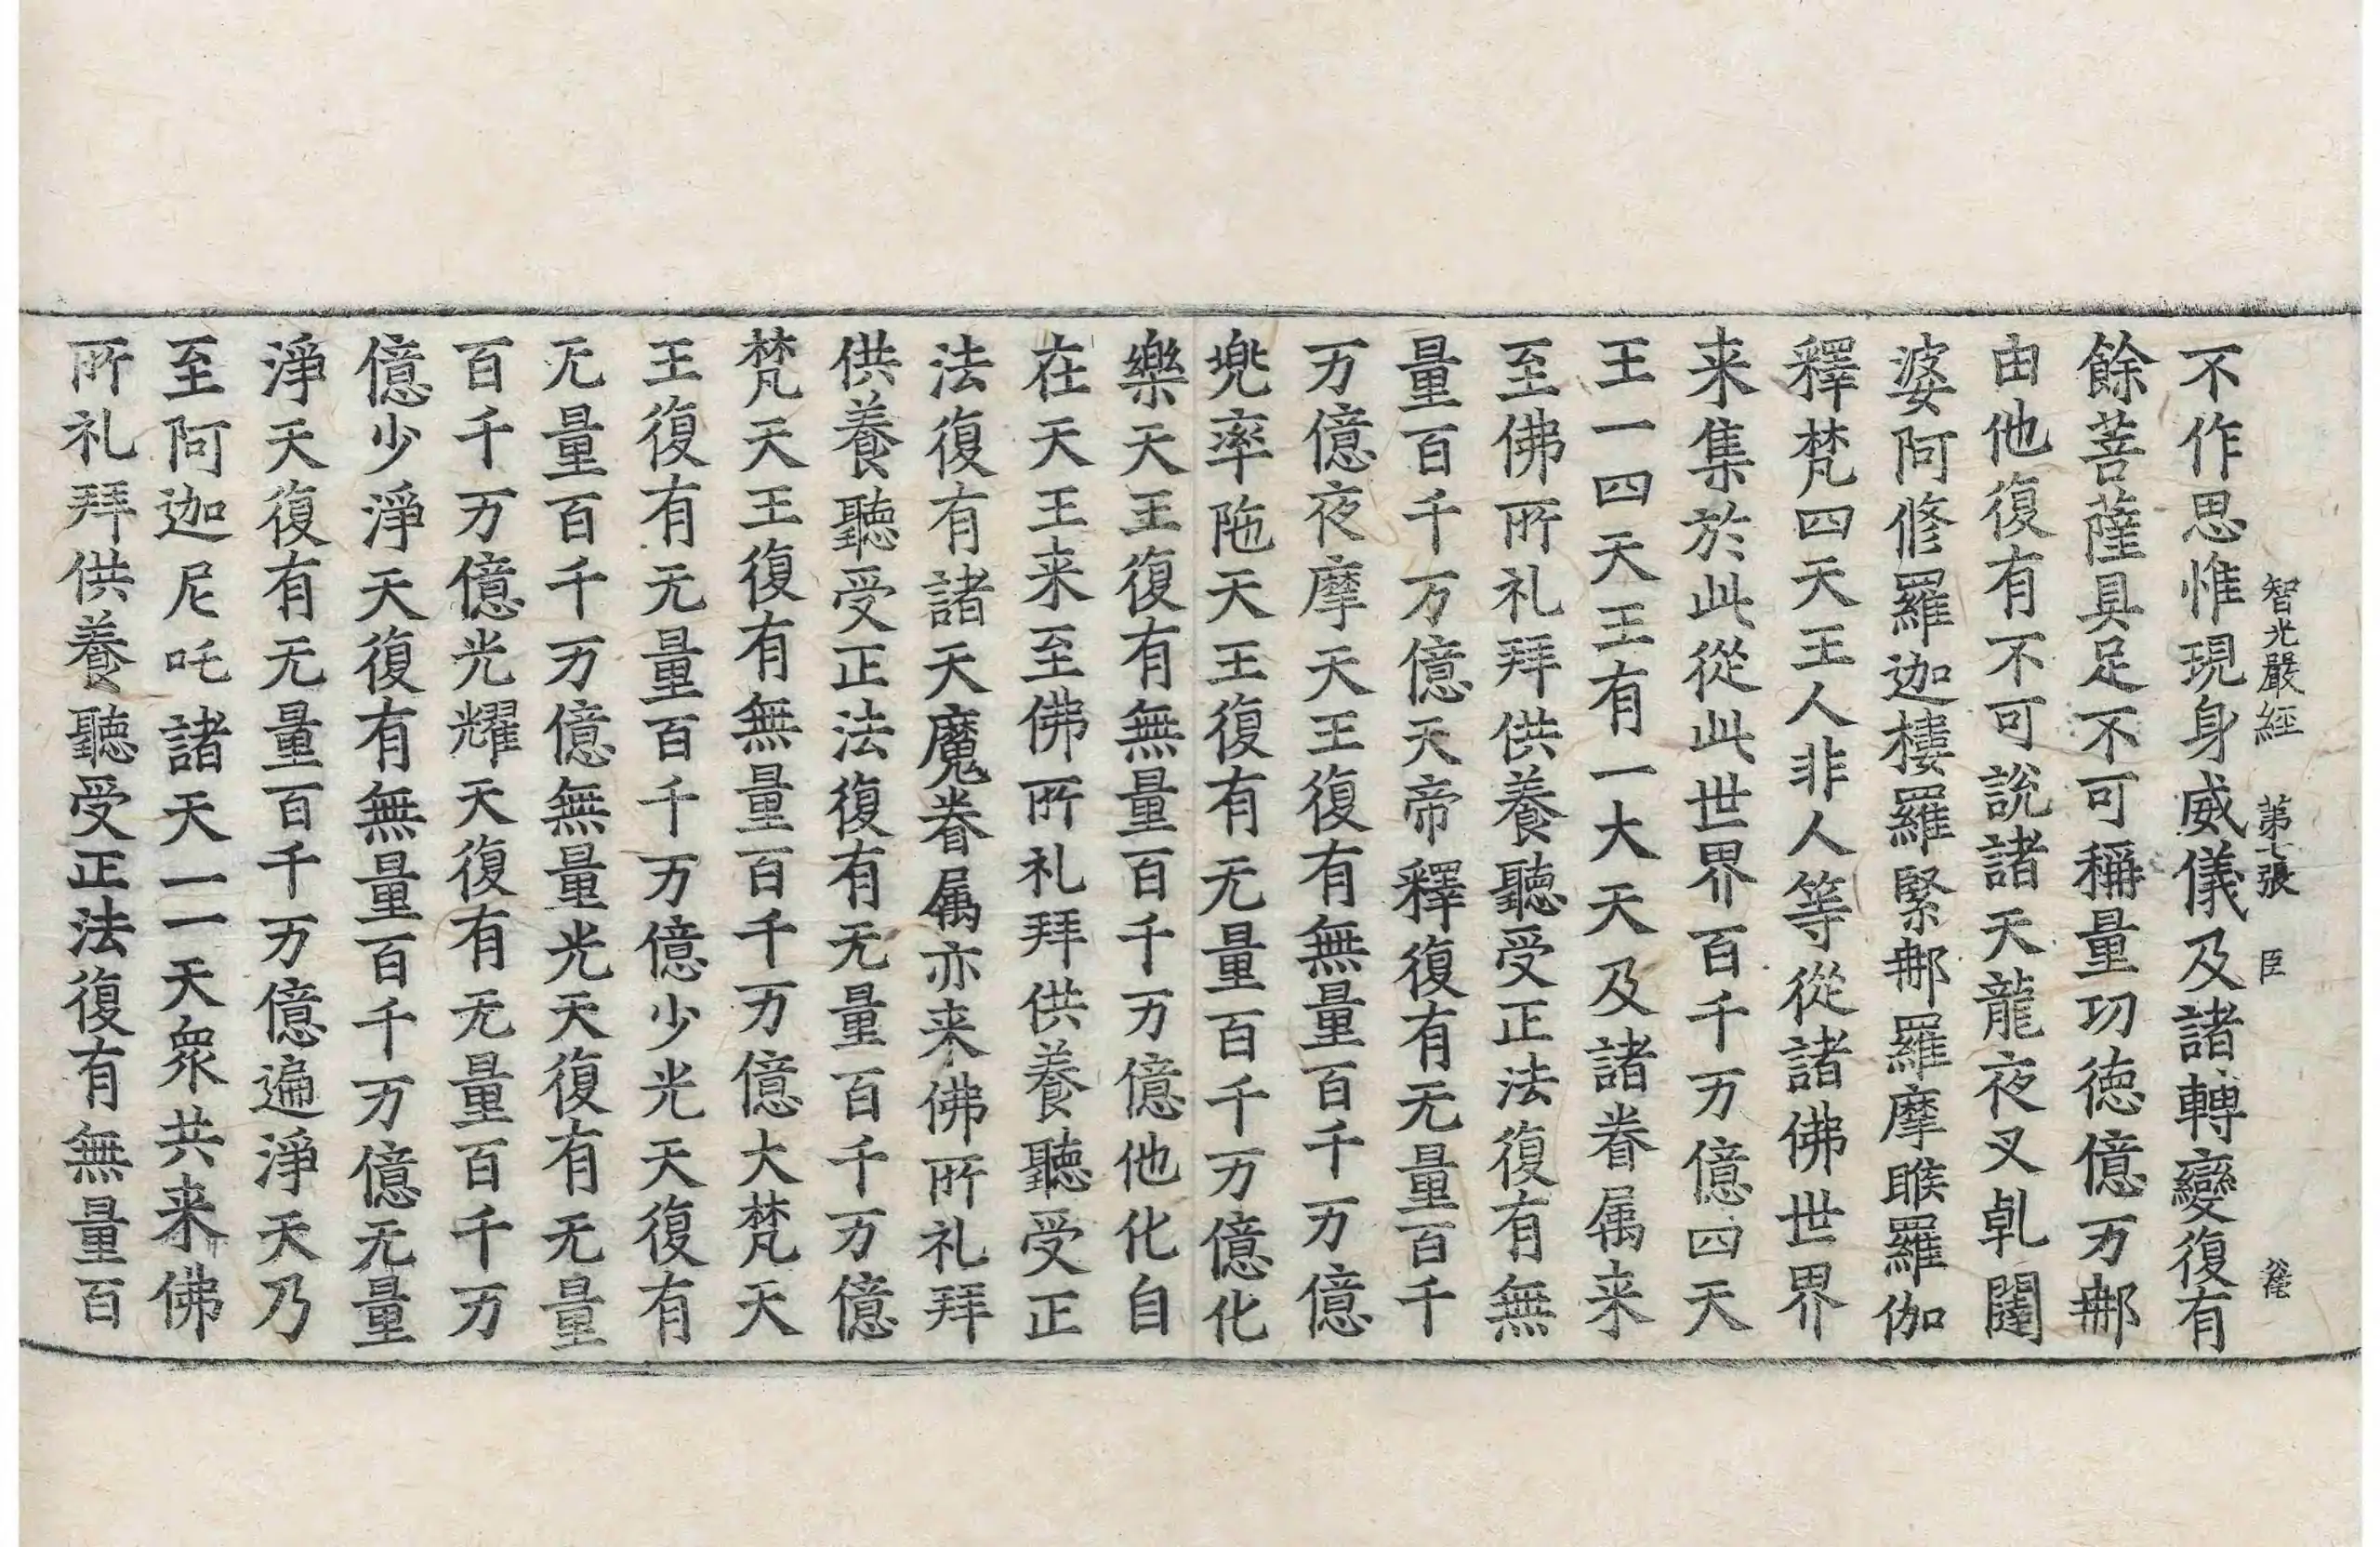 智光嚴經 第七張 臣
不作思惟現身威儀及諸轉變復有
餘菩薩具足不可稱量功德億万那
由他復有不可說諸天龍夜叉乹闥
婆阿修羅迦樓羅緊那羅摩睺羅伽
釋梵四天王人非人等從諸佛世界
来集於此從此世界百千万億四天
王一四天王有一大天及諸眷属来
至佛所礼拜供養聽受正法復有無
量百千万億天帝釋復有无量百千
万億夜摩天王復有無量百千万億
兜率陁天王復有无量百千万億化
樂天王復有無量百千万億他化自
在天王来至佛所礼拜供養聽受正
法復有諸天魔眷属亦来佛所礼拜
供養聽受正法復有无量百千万億
梵天王復有無量百千万億大梵天
王復有无量百千万億少光天復有
无量百千万億無量光天復有无量
百千万億光耀天復有无量百千万
億少淨天復有無量百千万億无量
淨天復有无量百千万億遍淨天乃
至阿迦尼吒諸天一一天衆共来佛
所礼拜供養聽受正法復有無量百